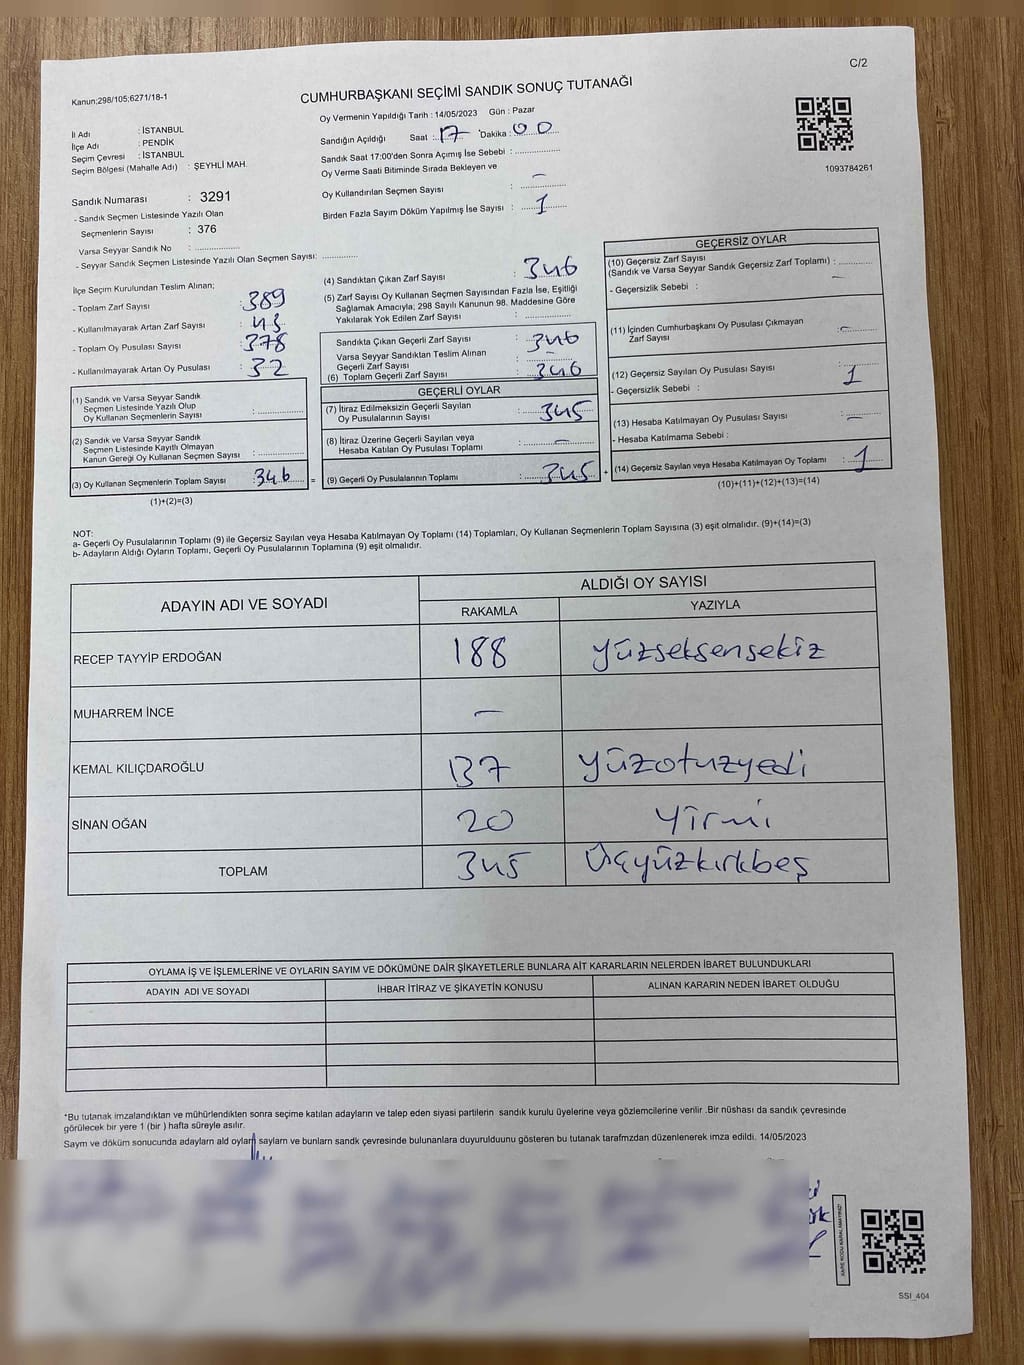 C/2
Kanun:298/105;6271/18-1
CUMHURBAŞKANI SEÇİMİ SANDIK SONUÇ TUTANAĞI
İl Adı : İSTANBUL
İlçe Adı : PENDİK
Seçim Çevresi : İSTANBUL
Seçim Bölgesi (Mahalle Adı) : ŞEYHLİ MAH.
Sandık Numarası : 3291
- Sandık Seçmen Listesinde Yazılı Olan
Seçmenlerin Sayısı : 376
Varsa Seyyar Sandık No : ..............
- Seyyar Sandık Seçmen Listesinde Yazılı Olan Seçmen Sayısı: ..............
Oy Vermenin Yapıldığı Tarih : 14/05/2023 Gün : Pazar
Sandığın Açıldığı Saat : 17 Dakika : 00
Sandık Saat 17:00'den Sonra Açımış İse Sebebi : ..............
Oy Verme Saati Bitiminde Sırada Bekleyen ve
Oy Kullandırılan Seçmen Sayısı : –
Birden Fazla Sayım Döküm Yapılmış İse Sayısı : 1
1093784261
İlçe Seçim Kurulundan Teslim Alınan;
- Toplam Zarf Sayısı : 389
- Kullanılmayarak Artan Zarf Sayısı : 43
- Toplam Oy Pusulası Sayısı : 378
- Kullanılmayarak Artan Oy Pusulası : 32
(1) Sandık ve Varsa Seyyar Sandık
Seçmen Listesinde Yazılı Olup
Oy Kullanan Seçmenlerin Sayısı : ..............
(2) Sandık ve Varsa Seyyar Sandık
Seçmen Listesinde Kayıtlı Olmayan
Kanun Gereği Oy Kullanan Seçmen Sayısı : ..............
(3) Oy Kullanan Seçmenlerin Toplam Sayısı : 346 =
(1)+(2)=(3)
(4) Sandıktan Çıkan Zarf Sayısı : 346
(5) Zarf Sayısı Oy Kullanan Seçmen Sayısından Fazla İse, Eşitliği
Sağlamak Amacıyla; 298 Sayılı Kanunun 98. Maddesine Göre
Yakılarak Yok Edilen Zarf Sayısı : ..............
Sandıkta Çıkan Geçerli Zarf Sayısı : 346
Varsa Seyyar Sandıktan Teslim Alınan
Geçerli Zarf Sayısı : ..............
(6) Toplam Geçerli Zarf Sayısı : 346
GEÇERLİ OYLAR
(7) İtiraz Edilmeksizin Geçerli Sayılan
Oy Pusulalarının Sayısı : 345
(8) İtiraz Üzerine Geçerli Sayılan veya
Hesaba Katılan Oy Pusulası Toplamı : –
(9) Geçerli Oy Pusulalarının Toplamı : 345 +
GEÇERSİZ OYLAR
(10) Geçersiz Zarf Sayısı
(Sandık ve Varsa Seyyar Sandık Geçersiz Zarf Toplamı) : ..............
- Geçersizlik Sebebi : –
(11) İçinden Cumhurbaşkanı Oy Pusulası Çıkmayan
Zarf Sayısı : –
(12) Geçersiz Sayılan Oy Pusulası Sayısı : 1
- Geçersizlik Sebebi :
(13) Hesaba Katılmayan Oy Pusulası Sayısı : –
- Hesaba Katılmama Sebebi :
(14) Geçersiz Sayılan veya Hesaba Katılmayan Oy Toplamı : 1
(10)+(11)+(12)+(13)=(14)
NOT:
a- Geçerli Oy Pusulalarının Toplamı (9) ile Geçersiz Sayılan veya Hesaba Katılmayan Oy Toplamı (14) Toplamları, Oy Kullanan Seçmenlerin Toplam Sayısına (3) eşit olmalıdır. (9)+(14)=(3)
b- Adayların Aldığı Oyların Toplamı, Geçerli Oy Pusulalarının Toplamına (9) eşit olmalıdır.
ADAYIN ADI VE SOYADI ALDIĞI OY SAYISI
RAKAMLA YAZIYLA
RECEP TAYYİP ERDOĞAN 188 yüzseksensekiz
MUHARREM İNCE –
KEMAL KILIÇDAROĞLU 137 yüzotuzyedi
SİNAN OĞAN 20 yirmi
TOPLAM 345 Üçyüzkırkbeş
OYLAMA İŞ VE İŞLEMLERİNE VE OYLARIN SAYIM VE DÖKÜMÜNE DAİR ŞİKAYETLERLE BUNLARA AİT KARARLARIN NELERDEN İBARET BULUNDUKLARI
ADAYIN ADI VE SOYADI İHBAR İTİRAZ VE ŞİKAYETİN KONUSU ALINAN KARARIN NEDEN İBARET OLDUĞU
*Bu tutanak imzalandıktan ve mühürlendikten sonra seçime katılan adayların ve talep eden siyasi partilerin sandık kurulu üyelerine veya gözlemcilerine verilir .Bir nüshası da sandık çevresinde
görülecek bir yere 1 (bir ) hafta süreyle asılır.
Sayım ve döküm sonucunda adayların ald oyların sayların ve bunların sandk çevresinde bulunanlara duyurulduunu gösteren bu tutanak tarafmzdan düzenlenerek imza edildi. 14/05/2023
SSI_404